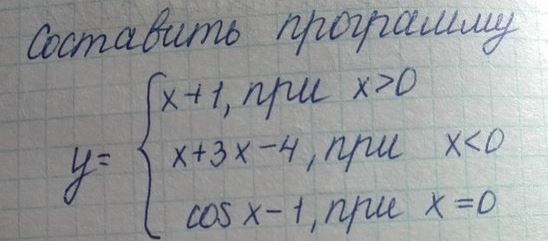 Составить программу
x+1, при x>0
y= { x+3x-4, при x<0
cos x-1, при x=0